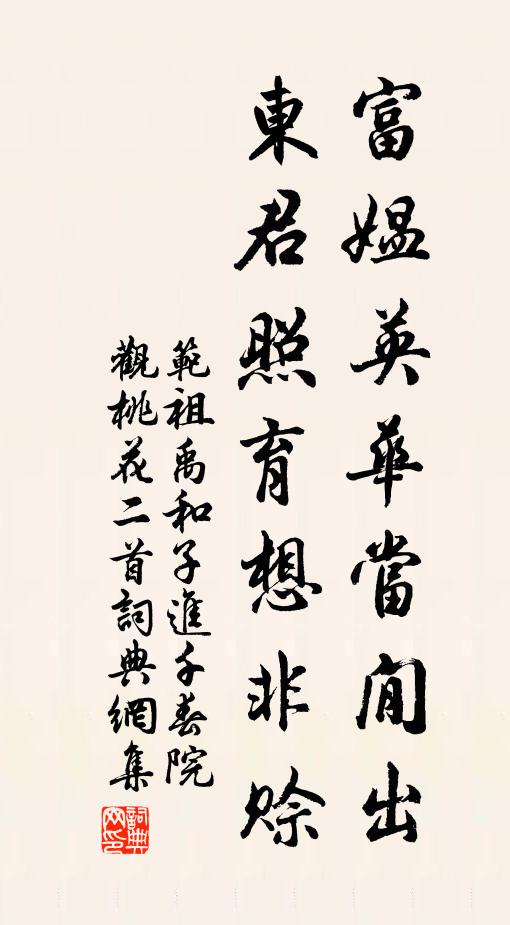 富媼英華當間出
東君照育想非賒
範祖禹和子進千春院
觀桃花二首詞典網集
詞典
网印